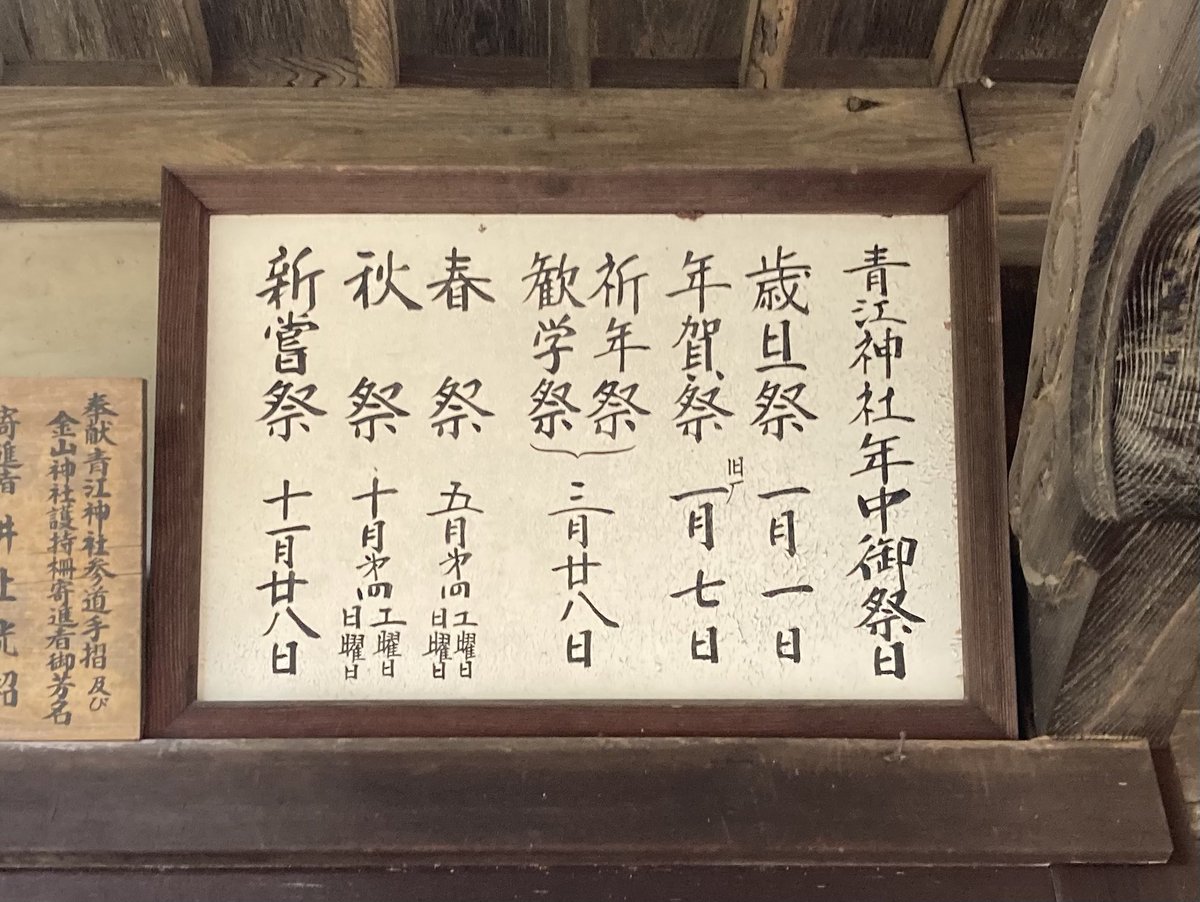 青江神社年中御祭日
歳旦祭 一月一日
年賀祭 旧一月七日
祈年祭
歓学祭
三月廿八日
春祭 五月第四工曜日
日曜日
秋祭 十月第四工曜日
日曜日
新嘗祭 十一月廿八日
奉献青江神社参道手招及び
金山神社護持柵寄進者御芳名
寄進者